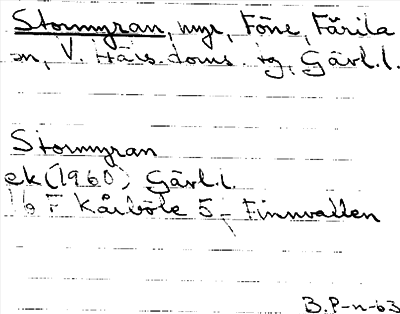 Stormyran, myr, Föne, Färila
sn, V. Häls. doms. tg, Gävl.l.
Stormyran
ek (1960) Gävl.l.
16 F Kårböle 5 - Finnvallen
B.P-n-63